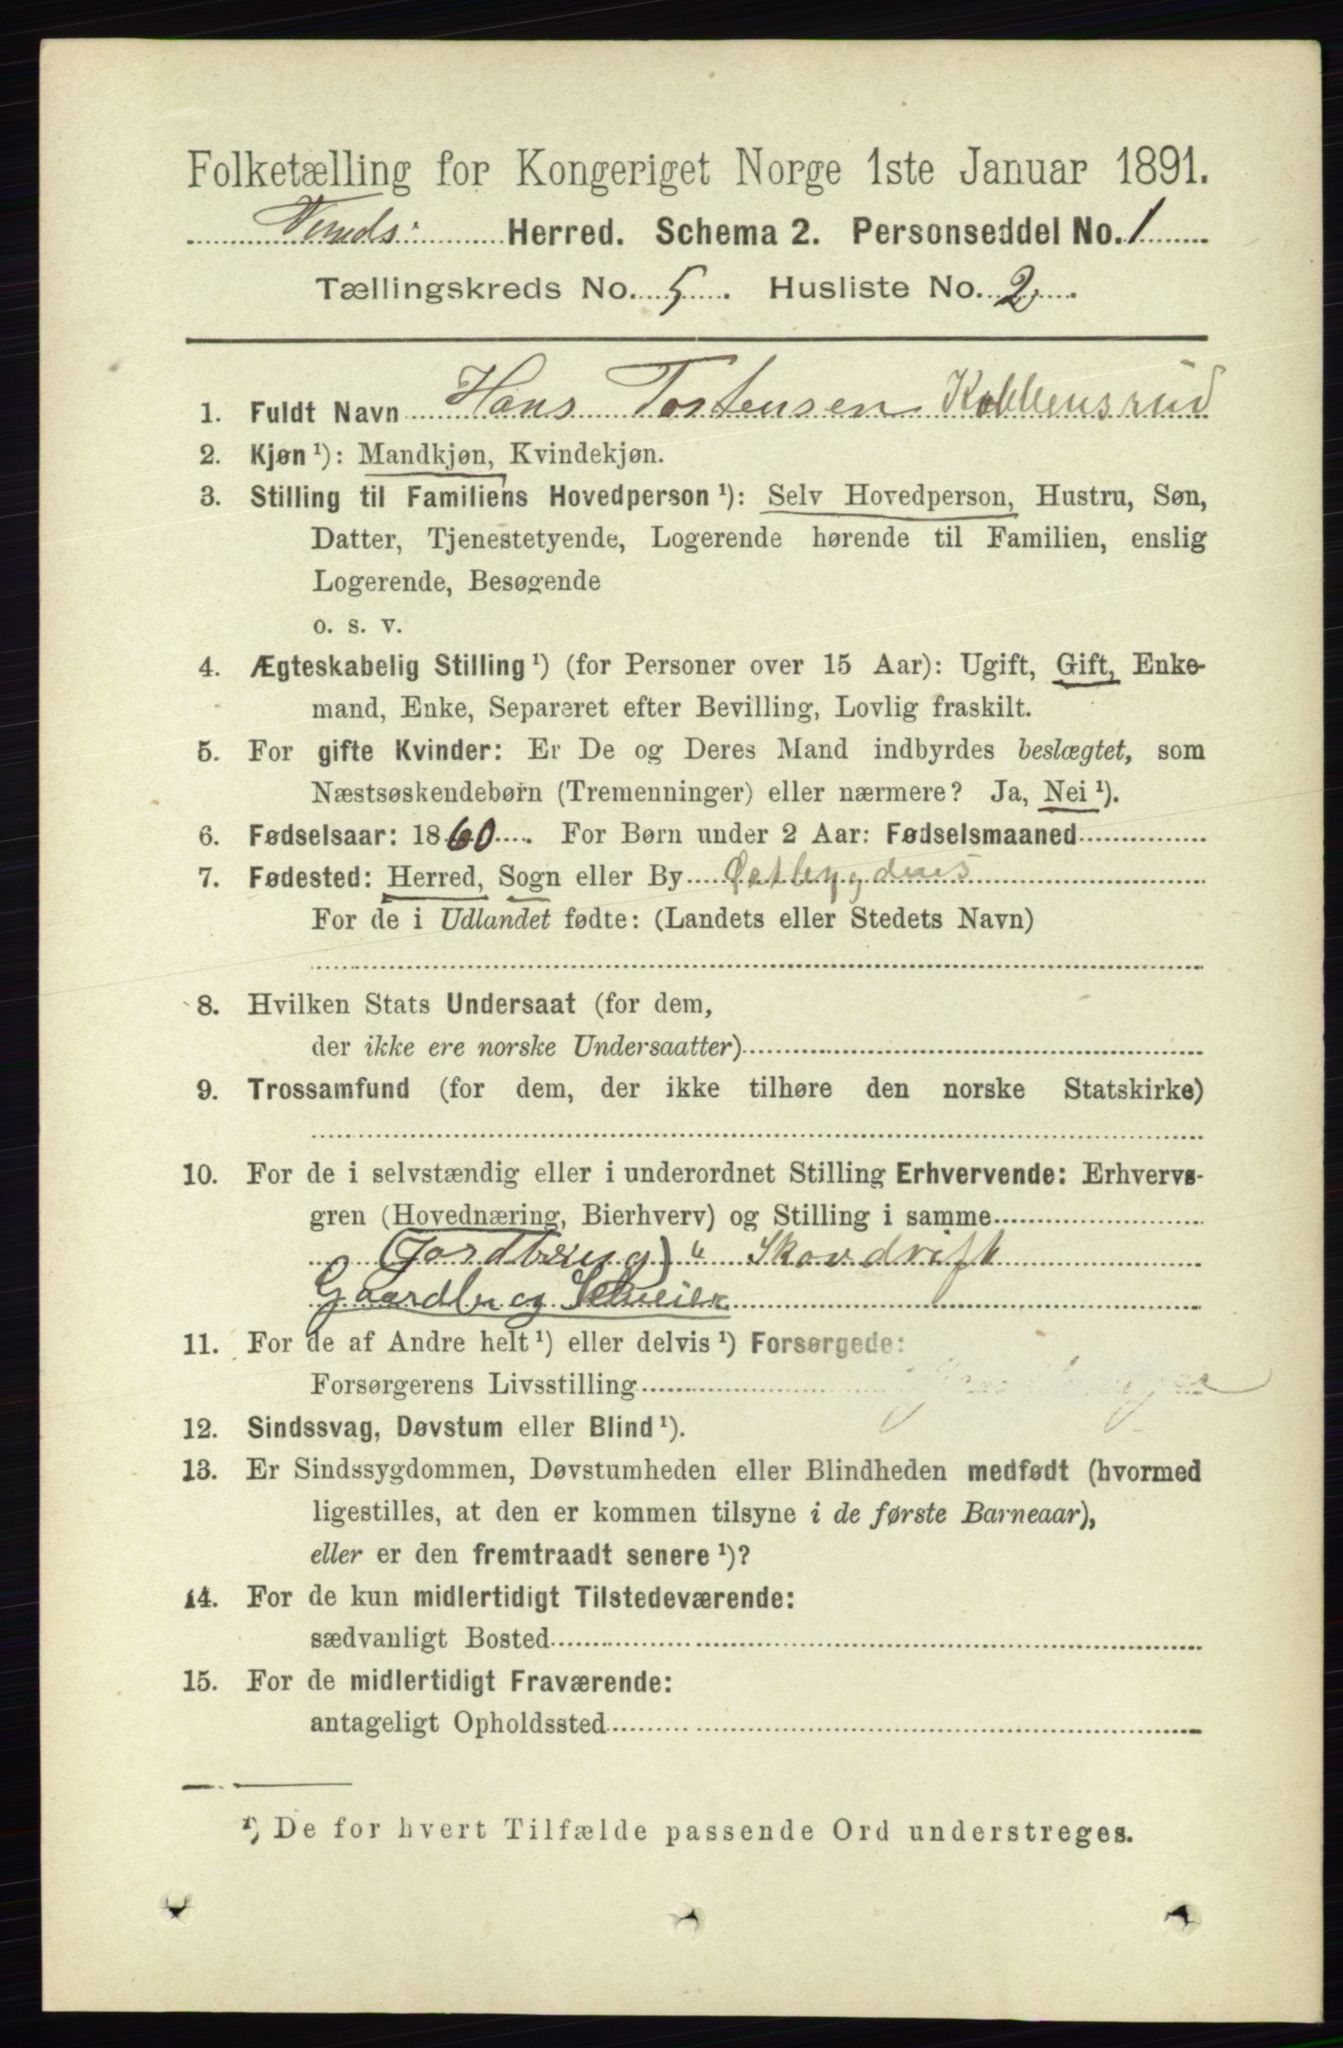 Folketælling for Kongeriget Norge 1ste Januar 1891.
Herred. Schema 2. Personseddel No. 1
Tællingskreds No. 5. Husliste No. 2.
1. Fuldt Navn Hans Tostensen Kobbensrud
2. Kjøn ¹): Mandkjøn, Kvindekjøn.
3. Stilling til Familiens Hovedperson ¹): Selv Hovedperson, Hustru, Søn,
Datter, Tjenestetyende, Logerende hørende til Familien, enslig
Logerende, Besøgende
o. s. v.
4. Ægteskabelig Stilling ¹) (for Personer over 15 Aar): Ugift, Gift, Enke-
mand, Enke, Separeret efter Bevilling, Lovlig fraskilt.
5. For gifte Kvinder: Er De og Deres Mand indbyrdes beslægtet, som
Næstsøskendebørn (Tremenninger) eller nærmere? Ja, Nei ¹).
6. Fødselsaar: 1860. For Børn under 2 Aar: Fødselsmaaned
7. Fødested: Herred, Sogn eller By Østbygdens
For de i Udlandet fødte: (Landets eller Stedets Navn)
8. Hvilken Stats Undersaat (for dem,
der ikke ere norske Undersaatter)
9. Trossamfund (for dem, der ikke tilhøre den norske Statskirke)
10. For de i selvstændig eller i underordnet Stilling Erhvervende: Erhvervs-
gren (Hovednæring, Bierhverv) og Stilling i samme
(Jordbrug) " Skovdrift
Gaardbr og Selveier
11. For de af Andre helt ¹) eller delvis ¹) Forsørgede:
Forsørgerens Livsstilling
12. Sindssvag, Døvstum eller Blind ¹).
13. Er Sindssygdommen, Døvstumheden eller Blindheden medfødt (hvormed
ligestilles, at den er kommen tilsyne i de første Barneaar),
eller er den fremtraadt senere ¹)?
14. For de kun midlertidigt Tilstedeværende:
sædvanligt Bosted
15. For de midlertidigt Fraværende:
antageligt Opholdssted
¹) De for hvert Tilfælde passende Ord understreges.